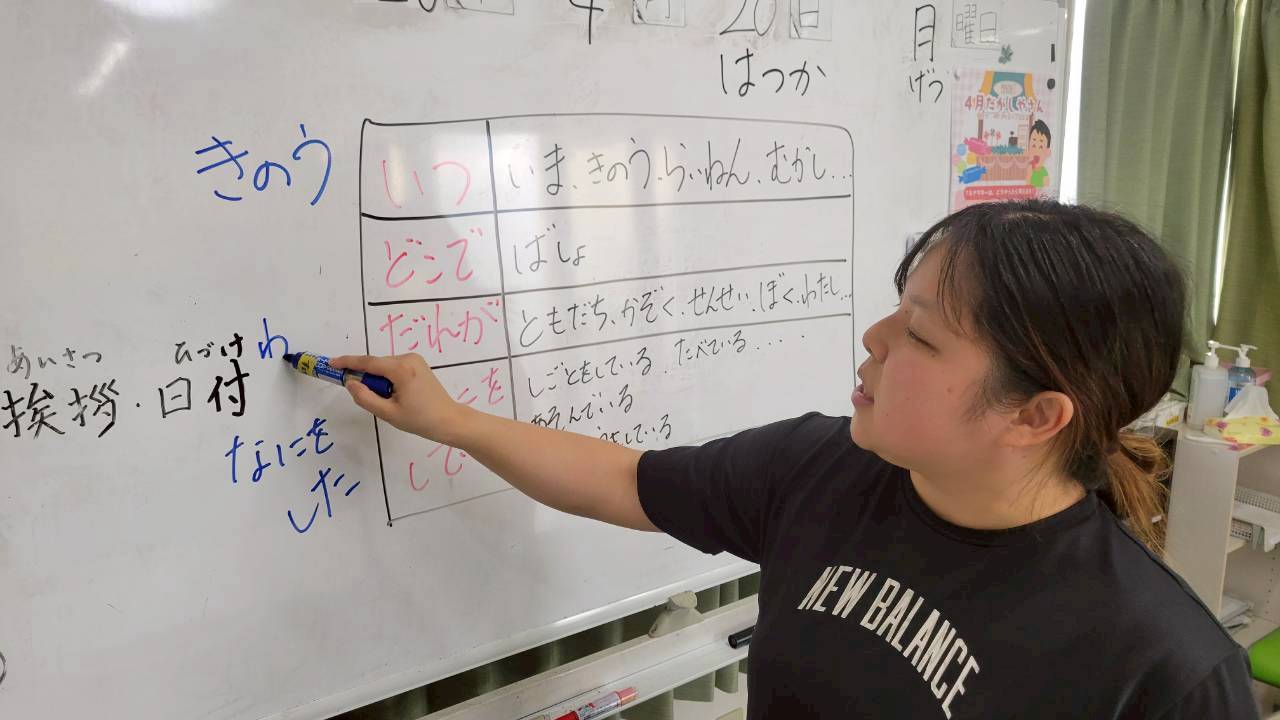 4 月 20 日
はつか
月 曜日
げつ
4月だがしやさん
きのう
いつ いま、きのう、らいねん、むかし...
どこで ばしょ
だれが ともだち、かぞく、せんせい、ぼく、わたし...
しごともしている、たべている....
あそんでいる
している
あいさつ ひづけ
挨拶・日付
わ
なにを
した
NEW BALANCE